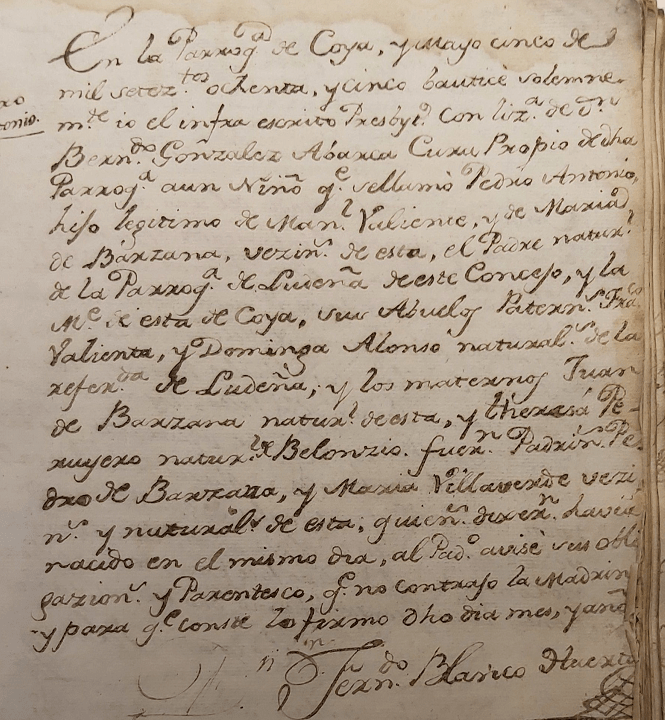 En la Parrog.ª de Coya, y Mayo cinco de
mil setez.tos ochenta, y cinco bauticé solemne
m.te io el infra escrito Presbyt.º con liz.ª de D.n
Bern.do Gonzalez Abarca Cura Propio de dha
Parrog.ª a un Niño q.e se llumò Pedro Antonio,
hijo legitimo de Man.l Valiente, y de Maria
de Barzana, vezin.s de esta, el Padre natur.l
de la Parrog.ª de Ludeña de este Concejo, y la
M.e de esta de Coya, sus Abuelos Patern.s Fra.co
Valienta, y Dominga Alonso natural.s de la
refer.da de Ludeña, y los maternos Juan
de Barzana natur.l de esta, y theresa Pe-
ruyero natur.l de Belonzio. fuer.n Padrin.s Pe
dro de Barzana, y Maria Villaverde vezi
n.s y natural.s de esta, quien.s dixer.n haver
nacido en el mismo dia, al Pad.o avisè sus obli
gazion.s y Parentesco, q.e no contrajo la Madrin
y para q.e conste lo firmo dho dia mes, y año
Fern.do Blanco Huerta
ro
tonio.